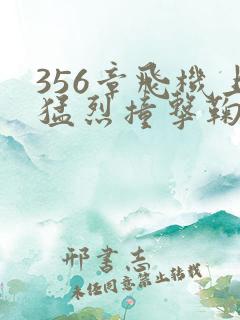 356章飛機上
猛烈撞擊鞠
邢書志
未经同意禁止转载